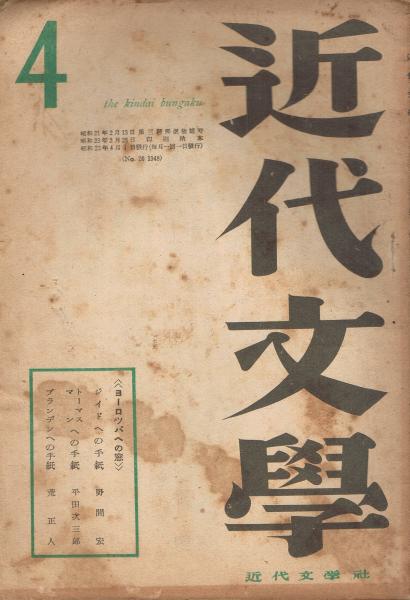 4
the kindai bungaku
近代文學
昭和21年2月15日第三種郵便物認可
昭和23年3月25日 印刷納本
昭和23年4月1日發行(毎月一回一日發行)
(No. 20 1948)
〈ヨーロツパへの窓〉
ジイドへの手紙 野間宏
トーマス・マンへの手紙 平田次三郎
ブランデンへの手紙 荒正人
近代文學社